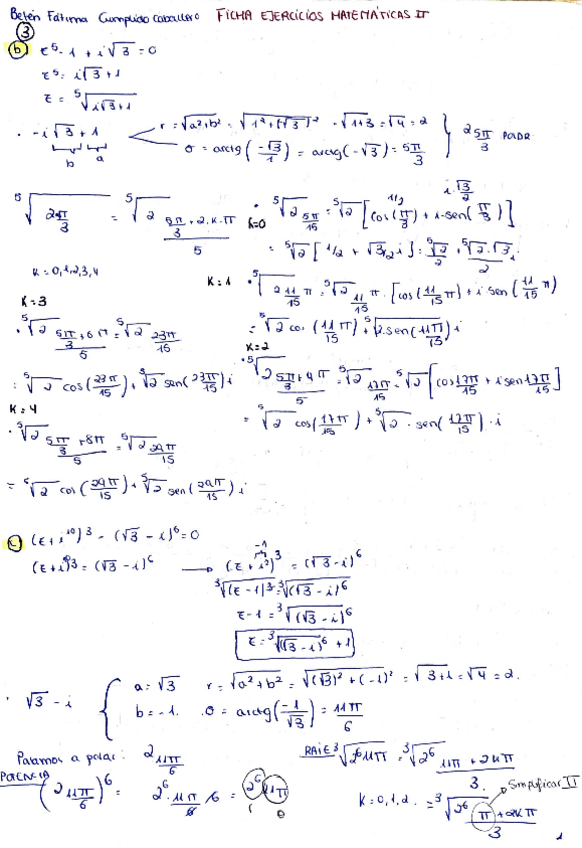 Belén Fátima Cumplido Caballero FICHA EJERCICIOS MATEMÁTICAS II
③
b) z⁵ - 1 + i√3 = 0
z⁵ = i√3 + 1
z = ⁵√(i√3+1)
· -i√3 + 1 r = √(a²+b²) = √(1²+(√3)²) = √(1+3) = √4 = 2
b a σ = arctg(-√3/1) = arctg(-√3) = 5π/3 } 2 5π/3 POLAR
⁵√(2 5π/3) = ⁵√2 (5π/3 + 2·k·π)/5
K = 0,1,2,3,4
K=0 · ⁵√2 5π/15 = ⁵√2 [cos(π/3) + i·sen(π/3)] 1/2 i·√3/2
= ⁵√2 [1/2 + √3/2 i] = ⁵√2/2 + ⁵√2·√3/2 i
K=1 · ⁵√2 11π/15 = ⁵√2 11π/15 · [cos(11/15 π) + i sen(11/15 π)]
= ⁵√2 cos(11/15 π) + ⁵√2·sen(11π/15) i
K=2
· ⁵√2 (5π/3+4π)/5 = ⁵√2 17π/15 = ⁵√2 [cos 17π/15 + i sen 17π/15]
= ⁵√2 cos(17π/15) + ⁵√2 · sen(17π/15) · i
K=3
· ⁵√2 (5π/3+6π)/5 = ⁵√2 23π/15
= ⁵√2 cos(23π/15) + ⁵√2 sen(23π/15) i
K=4
· ⁵√2 (5π/3+8π)/5 = ⁵√2 29π/15
= ⁵√2 cos(29π/15) + ⁵√2 sen(29π/15) i
c) (z+i¹⁰)³ - (√3 - i)⁶ = 0
(z+i¹⁰)³ = (√3 - i)⁶ → (z + i²)³ = (√3 - i)⁶ -1
³√(z-1)³ = ³√(√3 - i)⁶
z-1 = ³√(√3 - i)⁶
z = ³√(√3 - i)⁶ + 1
· √3 - i { a = √3 r = √(a²+b²) = √((√3)² + (-1)²) = √(3+1) = √4 = 2.
b = -1. σ = arctg(-1/√3) = 11π/6
Pasamos a polar: 2 11π/6
POTENCIA (2 11π/6)⁶ = 2⁶ 11π/6 · 6 = 2⁶ 11π
r σ
RAIZ ³√(2⁶ 11π) = ³√2⁶ (11π + 2kπ)/3.
Simplificar π
K = 0,1,2. = ³√2⁶ (π + 2kπ)/3
1